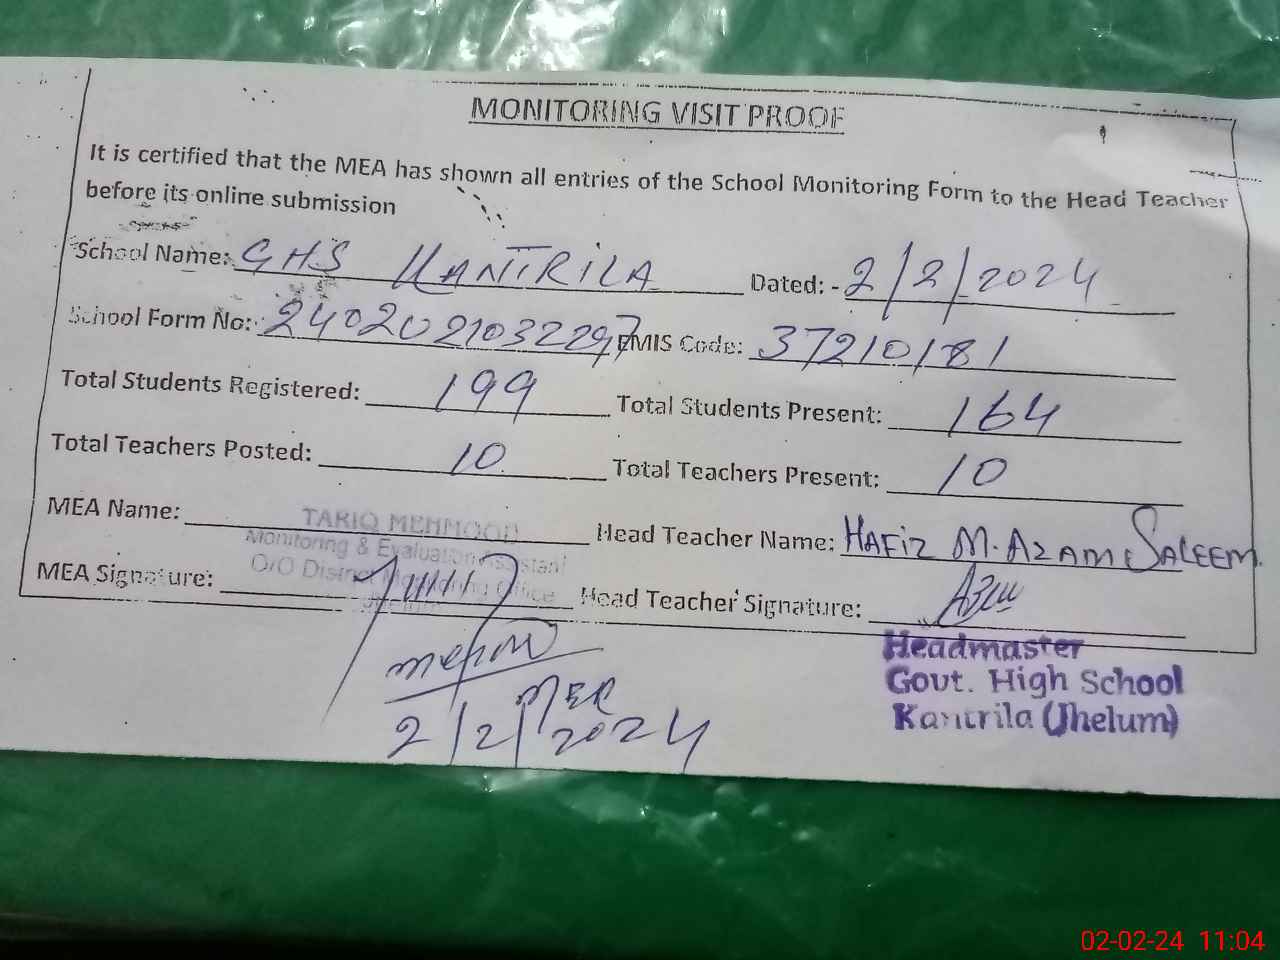 MONITORING VISIT PROOF
It is certified that the MEA has shown all entries of the School Monitoring Form to the Head Teacher
before its online submission
School Name: GHS KANTRILA Dated: - 2/2/2024
School Form No: 2402021032297 EMIS Code: 37210181
Total Students Registered: 199 Total Students Present: 164
Total Teachers Posted: 10 Total Teachers Present: 10
MEA Name: TARIQ MEHMOOD Head Teacher Name: HAFIZ M. AZAM SALEEM
Monitoring & Evaluation Assistant
O/O District Monitoring Office
Jhelum
MEA Signature: Head Teacher Signature:
Headmaster
Govt. High School
Kantrila (Jhelum)
2/2/2024
02-02-24 11:04